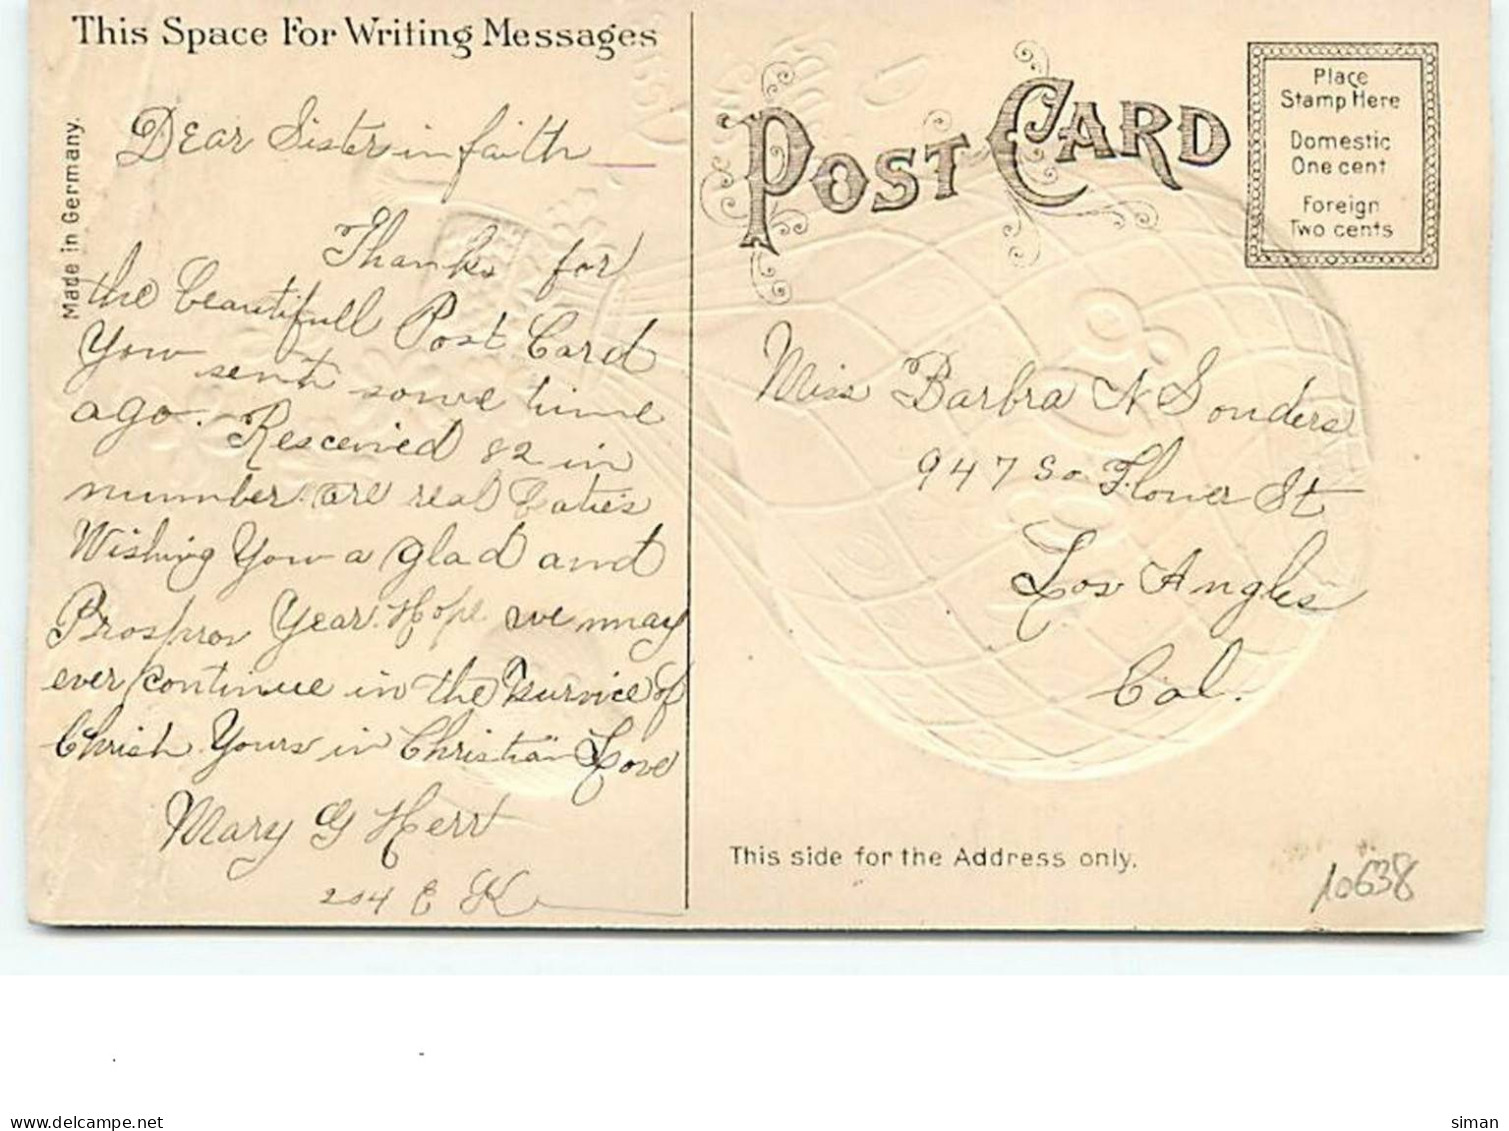 This Space For Writing Messages
Made in Germany.
Dear Sister in faith
Thanks for
the beautifull Post Card
You sent some time
ago. Resceived 82 in
number are real
Wishing You a glad and
Prosprov Year. Hope we may
ever continue in the survice of
Christ. Yours in Christian Love
Mary G Herr
204 E K
POST CARD
Place
Stamp Here
Domestic
One cent
Foreign
Two cents
Miss Barbra N Sonders
947 So Flower St
Los Angles
Cal.
This side for the Address only.
10638
www.delcampe.net
siman